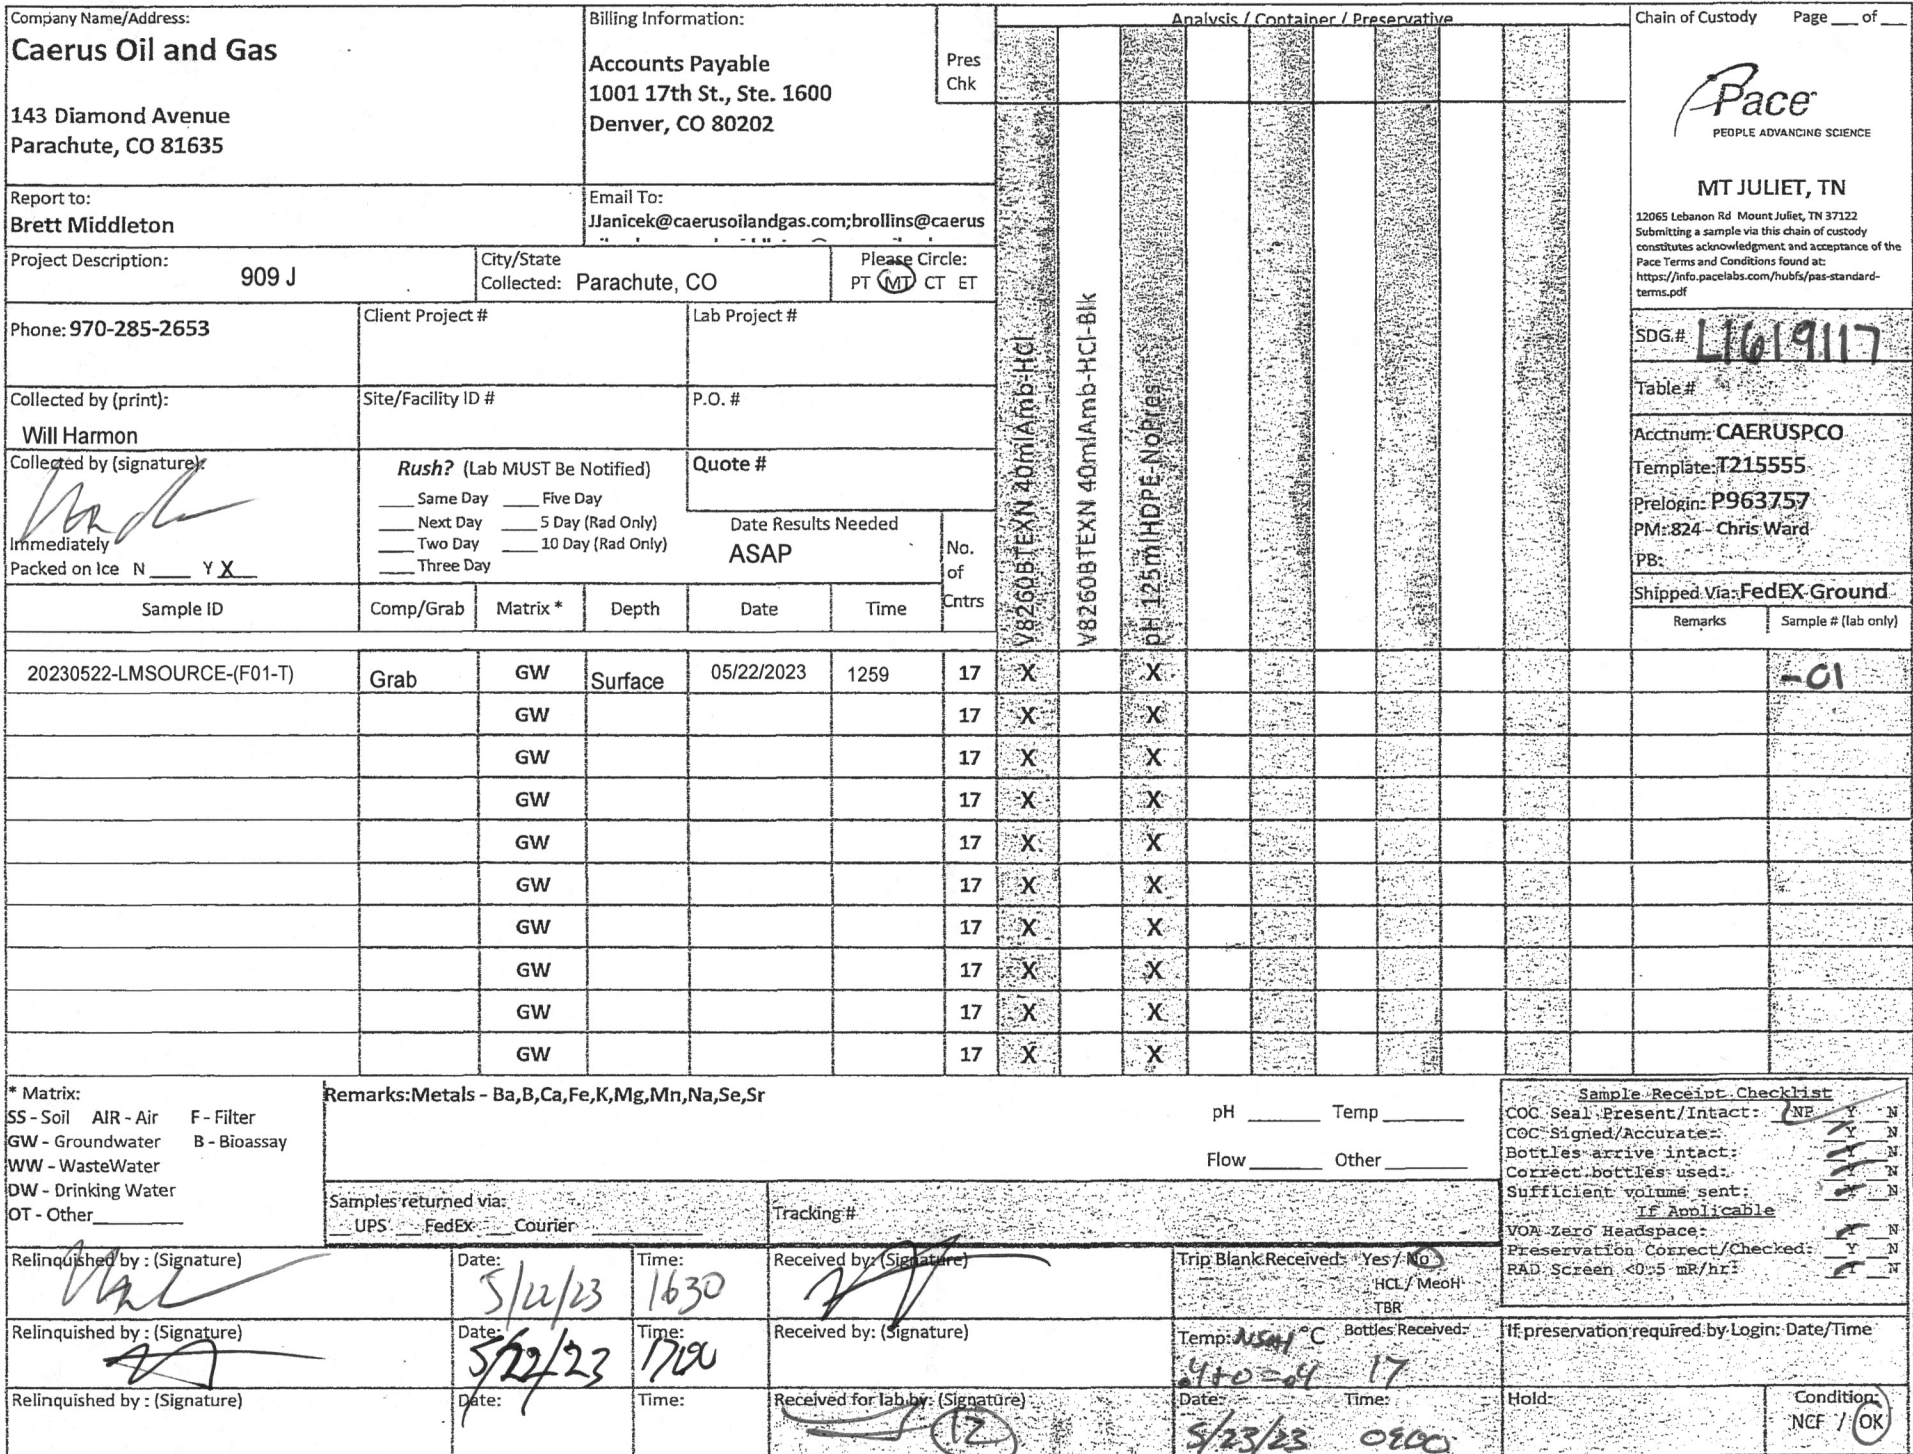 Company Name/Address:
Caerus Oil and Gas
143 Diamond Avenue
Parachute, CO 81635
Billing Information:
Accounts Payable
1001 17th St., Ste. 1600
Denver, CO 80202
Pres
Chk
Analysis / Container / Preservative
Chain of Custody Page ___ of ___
Pace
PEOPLE ADVANCING SCIENCE
MT JULIET, TN
12065 Lebanon Rd Mount Juliet, TN 37122
Submitting a sample via this chain of custody
constitutes acknowledgment and acceptance of the
Pace Terms and Conditions found at:
https://info.pacelabs.com/hubfs/pas-standard-
terms.pdf
Report to:
Brett Middleton
Email To:
JJanicek@caerusoilandgas.com;brollins@caerus
Project Description:
909 J
City/State
Collected: Parachute, CO
Please Circle:
PT MT CT ET
Phone: 970-285-2653
Client Project #
Lab Project #
SDG.# L1619117
Table #
Collected by (print):
Will Harmon
Site/Facility ID #
P.O. #
Acctnum: CAERUSPCO
Template: T215555
Prelogin: P963757
PM: 824 - Chris Ward
PB:
Collected by (signature):
Rush? (Lab MUST Be Notified)
___ Same Day ___ Five Day
___ Next Day ___ 5 Day (Rad Only)
___ Two Day ___ 10 Day (Rad Only)
___ Three Day
Quote #
Date Results Needed
ASAP
Immediately
Packed on Ice N ___ Y X
No.
of
Cntrs
V8260BTEXN 40mlAmb-HCl
V8260BTEXN 40mlAmb-HCl-Blk
pH 125mlHDPE-NoPres
Shipped Via: FedEX Ground
Sample ID Comp/Grab Matrix * Depth Date Time Remarks Sample # (lab only)
20230522-LMSOURCE-(F01-T) Grab GW Surface 05/22/2023 1259 17 X X -01
GW 17 X X
GW 17 X X
GW 17 X X
GW 17 X X
GW 17 X X
GW 17 X X
GW 17 X X
GW 17 X X
GW 17 X X
* Matrix:
SS - Soil AIR - Air F - Filter
GW - Groundwater B - Bioassay
WW - WasteWater
DW - Drinking Water
OT - Other
Remarks:Metals - Ba,B,Ca,Fe,K,Mg,Mn,Na,Se,Sr
pH ___ Temp ___
Flow ___ Other ___
Samples returned via:
___ UPS ___ FedEx ___ Courier
Tracking #
Sample Receipt Checklist
COC Seal Present/Intact: NP Y N
COC Signed/Accurate: Y N
Bottles arrive intact: Y N
Correct bottles used: Y N
Sufficient volume sent: Y N
If Applicable
VOA Zero Headspace: Y N
Preservation Correct/Checked: Y N
RAD Screen <0.5 mR/hr: Y N
Relinquished by : (Signature) Date: 5/22/23 Time: 1630 Received by: (Signature)
Trip Blank Received: Yes / No
HCL / MeoH
TBR
Relinquished by : (Signature) Date: 5/22/23 Time: 1700 Received by: (Signature)
Temp: °C Bottles Received:
.4+0=.4 17
If preservation required by Login: Date/Time
Relinquished by : (Signature) Date: Time: Received for lab by: (Signature) 12
Date: 5/23/23 Time: 0900
Hold:
Condition:
NCF / OK